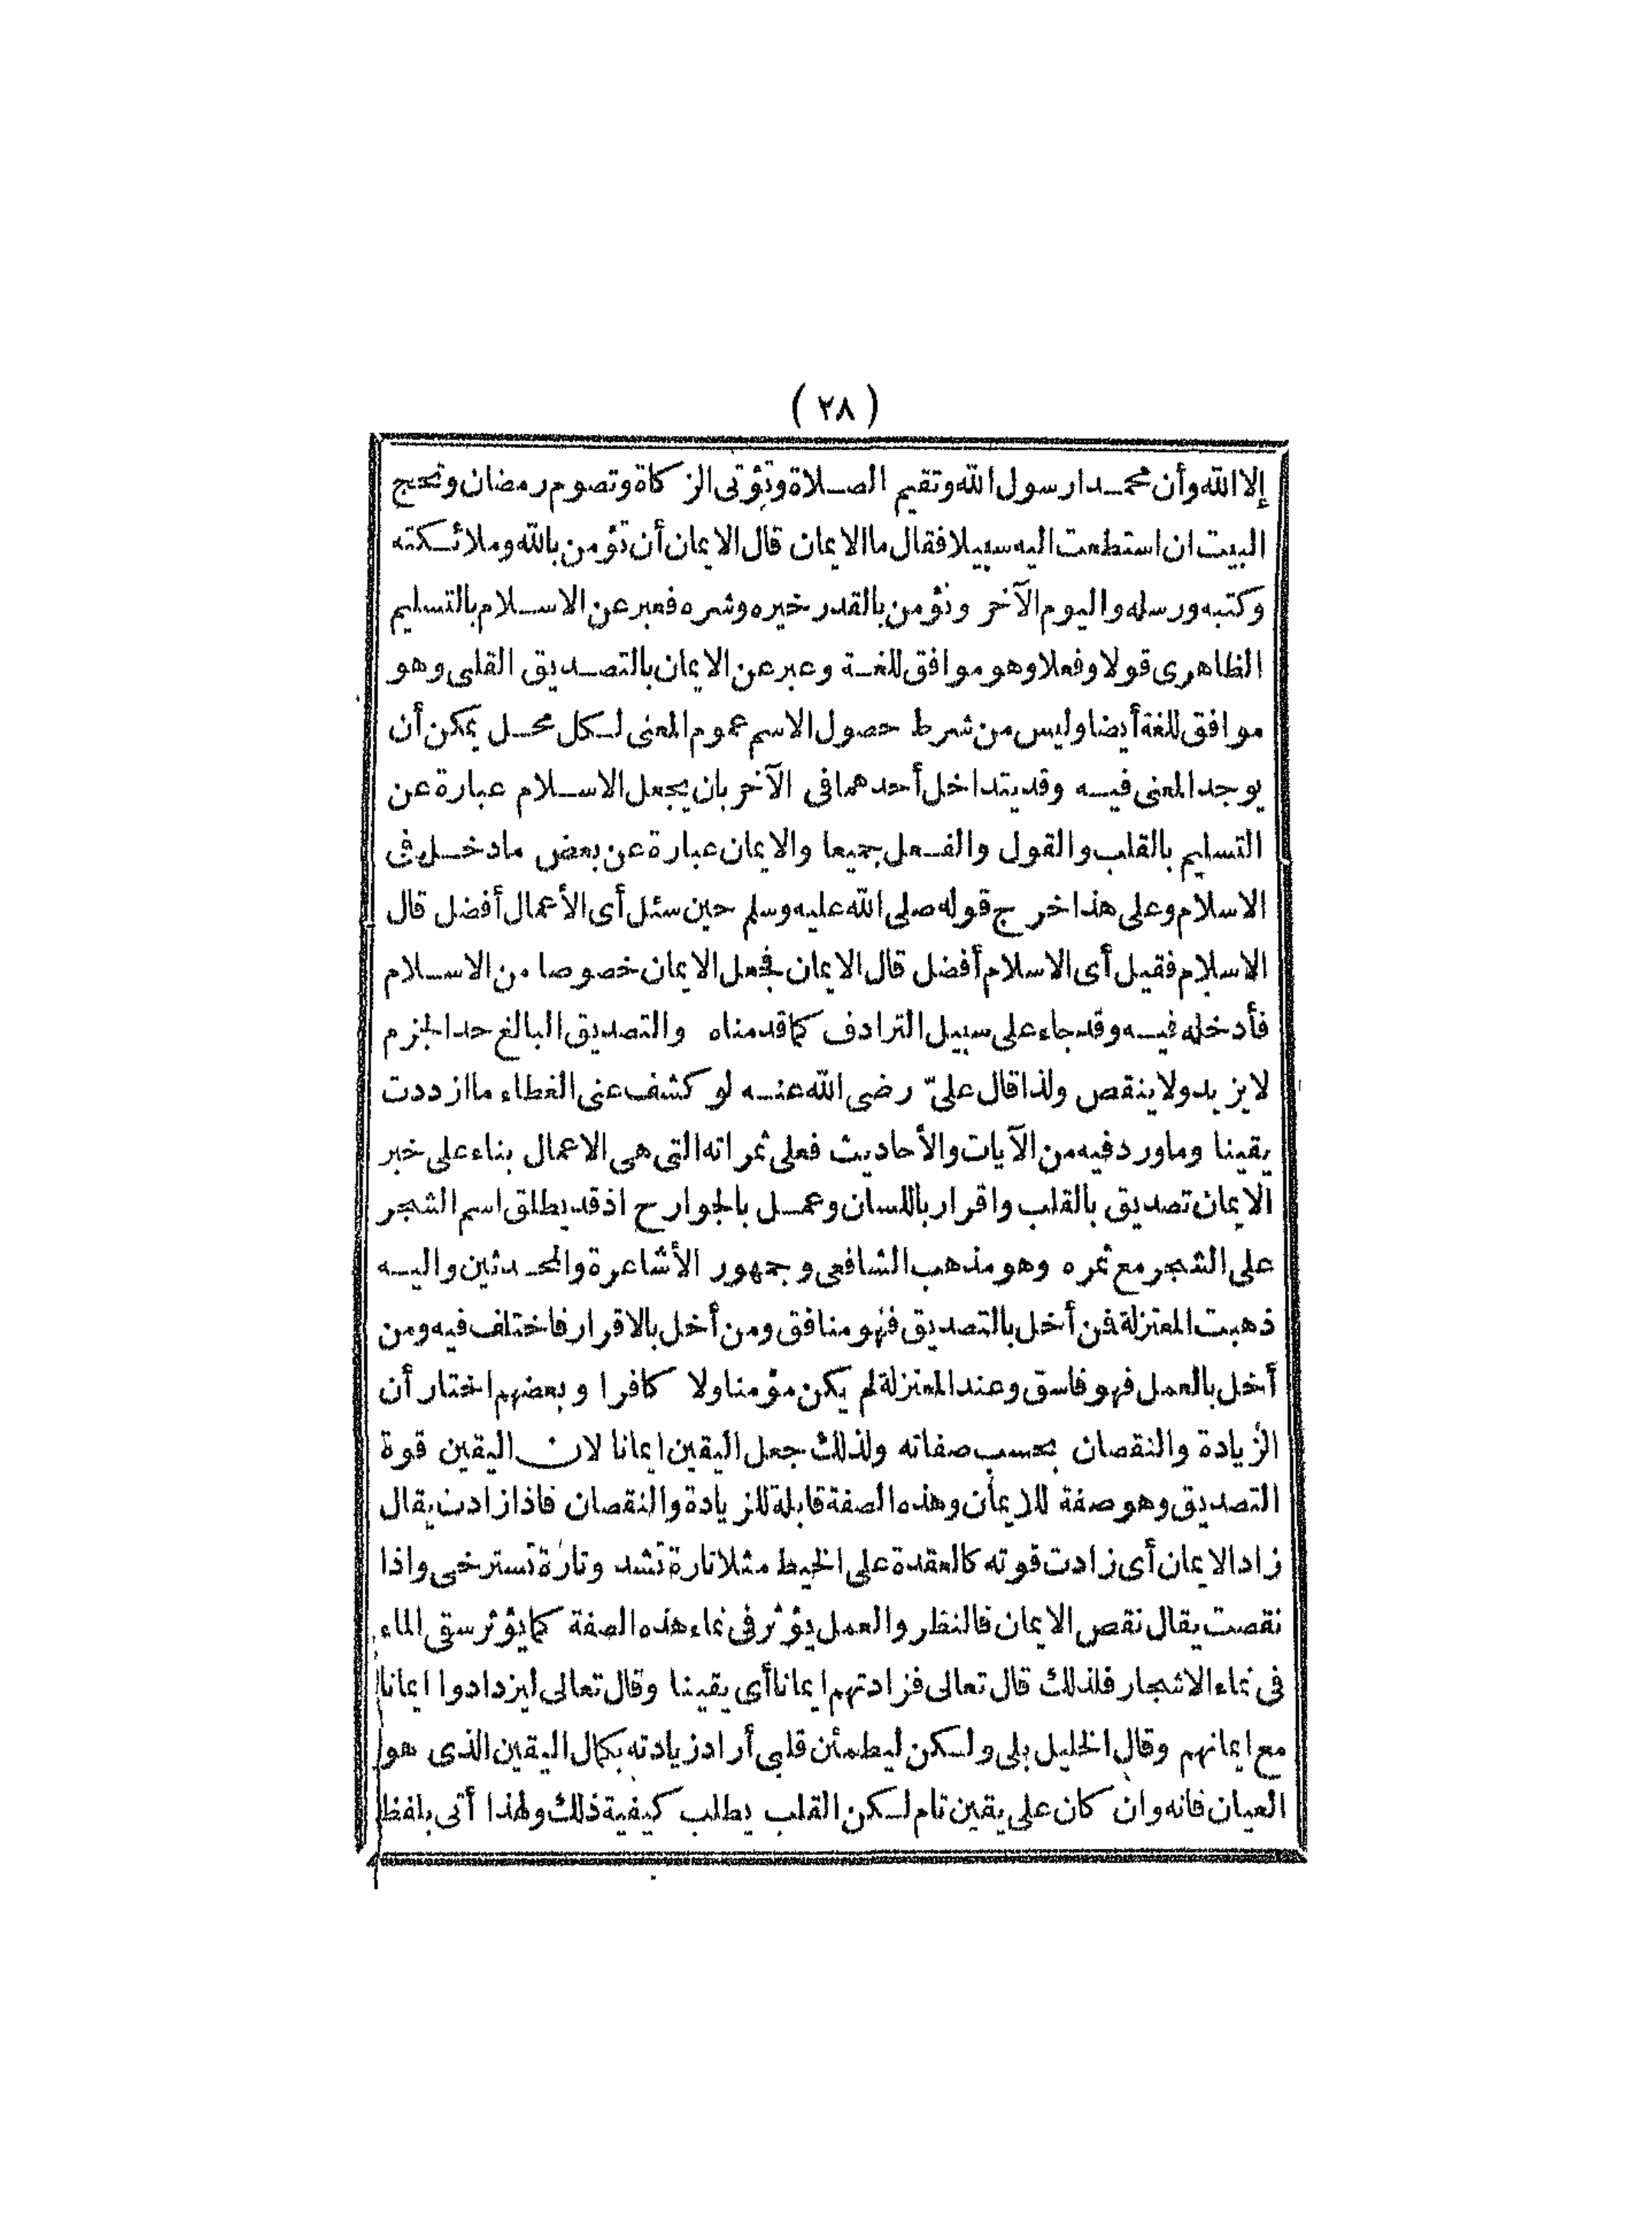 (٢٨)
إلا الله وأن محمدا رسول الله وتقيم الصلاة وتؤتى الزكاة وتصوم رمضان وتحج
البيت ان استطعت اليه سبيلا فقال ما الايمان قال الايمان أن تؤمن بالله وملائكته
وكتبه ورسله واليوم الآخر وتؤمن بالقدر خيره وشره فعبر عن الاسلام بالتسليم
الظاهرى قولا وفعلا وهو موافق للغة وعبر عن الايمان بالتصديق القلبى وهو
موافق للغة أيضا وليس من شرط حصول الاسم عموم المعنى لكل محل يمكن أن
يوجد المعنى فيه وقد يتداخل أحدهما فى الآخر بان يجعل الاسلام عبارة عن
التسليم بالقلب والقول والفعل جميعا والايمان عبارة عن بعض ما دخل فى
الاسلام وعلى هذا خرج قوله صلى الله عليه وسلم حين سئل أى الأعمال أفضل قال
الاسلام فقيل أى الاسلام أفضل قال الايمان فجعل الايمان خصوصا من الاسلام
فأدخله فيه وقد جاء على سبيل الترادف كما قدمناه والتصديق البالغ حد الجزم
لا يزيد ولا ينقص ولذا قال علىّ رضى الله عنه لو كشف عنى الغطاء ما ازددت
يقينا وما ورد فيه من الآيات والأحاديث فعلى ثمراته التى هى الاعمال بناء على خبر
الايمان تصديق بالقلب واقرار باللسان وعمل بالجوارح اذ قد يطلق اسم الشجر
على الشجر مع ثمره وهو مذهب الشافعى وجمهور الأشاعرة والمحدثين واليه
ذهبت المعتزلة فمن أخل بالتصديق فهو منافق ومن أخل بالاقرار فاختلف فيه ومن
أخل بالعمل فهو فاسق وعند المعتزلة لم يكن مؤمنا ولا كافرا وبعضهم اختار أن
الزيادة والنقصان بحسب صفاته ولذلك جعل اليقين ايمانا لان اليقين قوة
التصديق وهو صفة للايمان وهذه الصفة قابلة للزيادة والنقصان فاذا زادت يقال
زاد الايمان أى زادت قوته كالعقدة على الخيط مثلا تارة تشد وتارة تسترخى واذا
نقصت يقال نقص الايمان فالنظر والعمل يؤثر فى نماء هذه الصفة كما يؤثر سقى الماء
فى نماء الاشجار فلذلك قال تعالى فزادتهم ايمانا أى يقينا وقال تعالى ليزدادوا ايمانا
مع ايمانهم وقال الخليل بلى ولكن ليطمئن قلبى أراد زيادته بكمال اليقين الذى هو
العيان فانه وان كان على يقين تام لكن القلب يطلب كيفية ذلك ولهذا أتى بلفظ